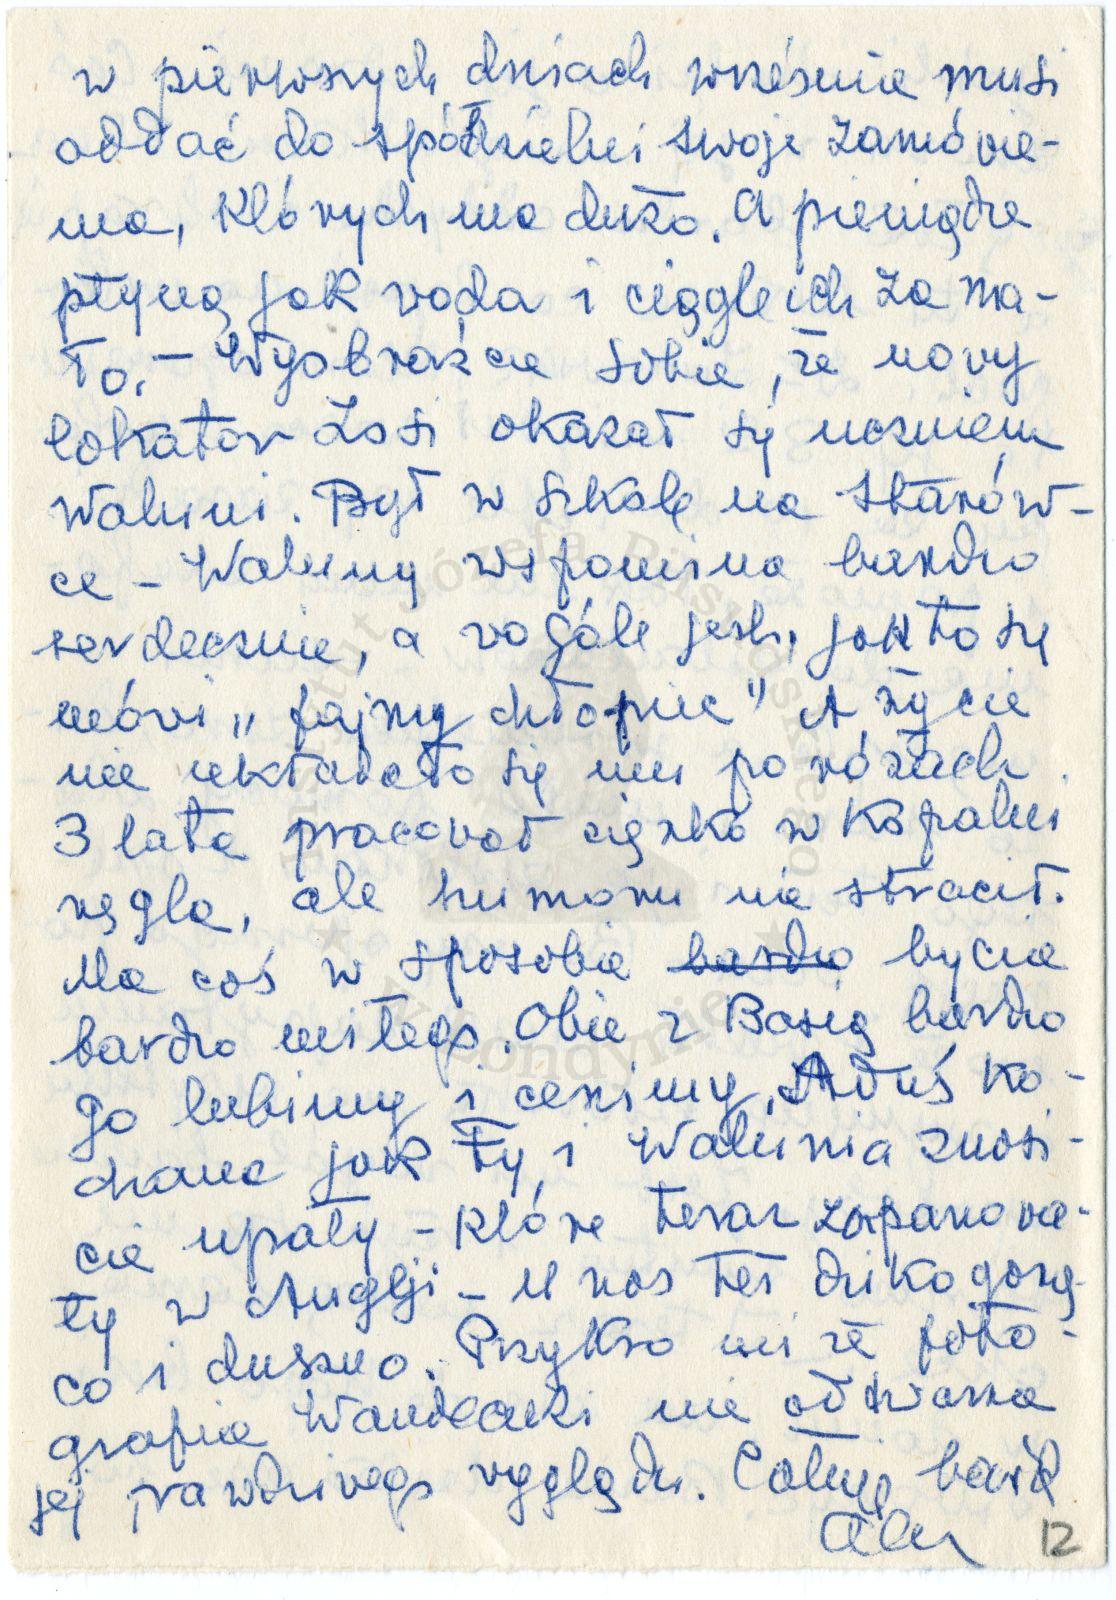 w pierwszych dniach września musi
oddać do spółdzielni swoje zamówie-
nia, których ma dużo. A pieniądze
płyną jak woda i ciągle ich za ma-
ło. – Wyobraźcie sobie, że nowy
lokator Zosi okazał się uczniem
Waluni. Był w szkole na Starów-
ce – Waluny wspomina bardzo
serdecznie, a wogóle jest, jak to się
mówi „fajny chłopiec” A życie
nie układało się mu po różach.
3 lata pracował ciężko w kopalni
węgla, ale humoru nie stracił.
Ma coś w sposobie bardzo bycia
bardzo miłego. Obie z Basią bardzo
go lubimy i cenimy. Aduś ko-
chane jak Ty i Walunia znosi-
cie upały – które teraz zapanowa-
ły w Anglji – U nas też dziko gorą-
co i duszno. Przykro mi że foto-
grafia Wandeczki nie odtwarza
jej prawdziwego wyglądu. Całuję bardz
Ala
12
Instytut Józefa Piłsudskiego
w Londynie